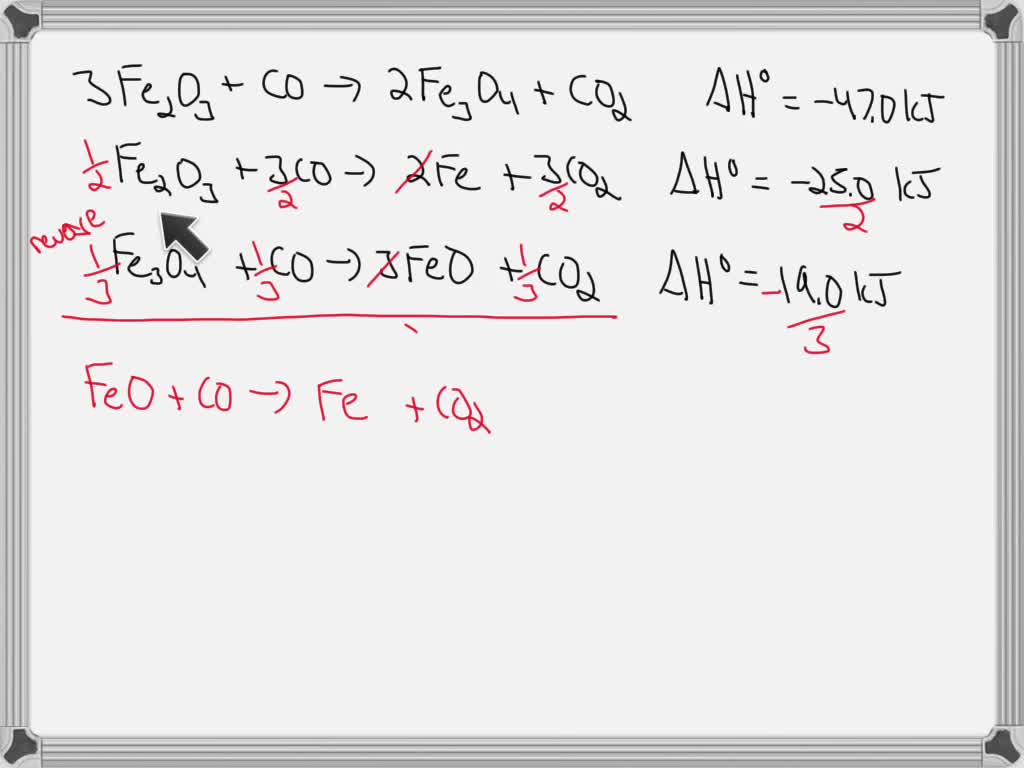 3Fe₂O₃ + CO → 2Fe₃O₄ + CO₂ ΔH° = -47.0 kJ
1/2 Fe₂O₃ + 3/2 CO → 2Fe + 3/2 CO₂ ΔH° = -25.0/2 kJ
reverse
1/3 Fe₃O₄ + 1/3 CO → 3FeO + 1/3 CO₂ ΔH° = -19.0/3 kJ
FeO + CO → Fe + CO₂